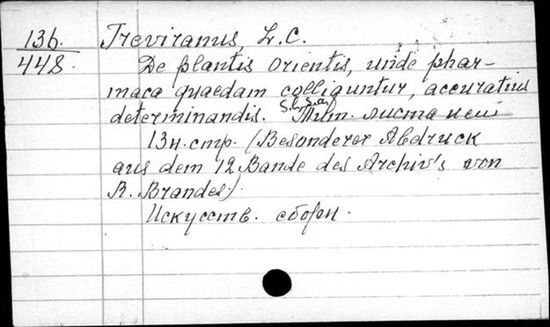 136. Treviranus, L.C.
448. De plantis orientis, unde phar-
maca quaedam colliguntur, accuratius
determinandis. S.l., s.a. Тит. листа нет
13 н. стр. (Besonderer Abdruck
aus dem 12 Bande des Archiv's von
R. Brandes).
Искусств. сборн.